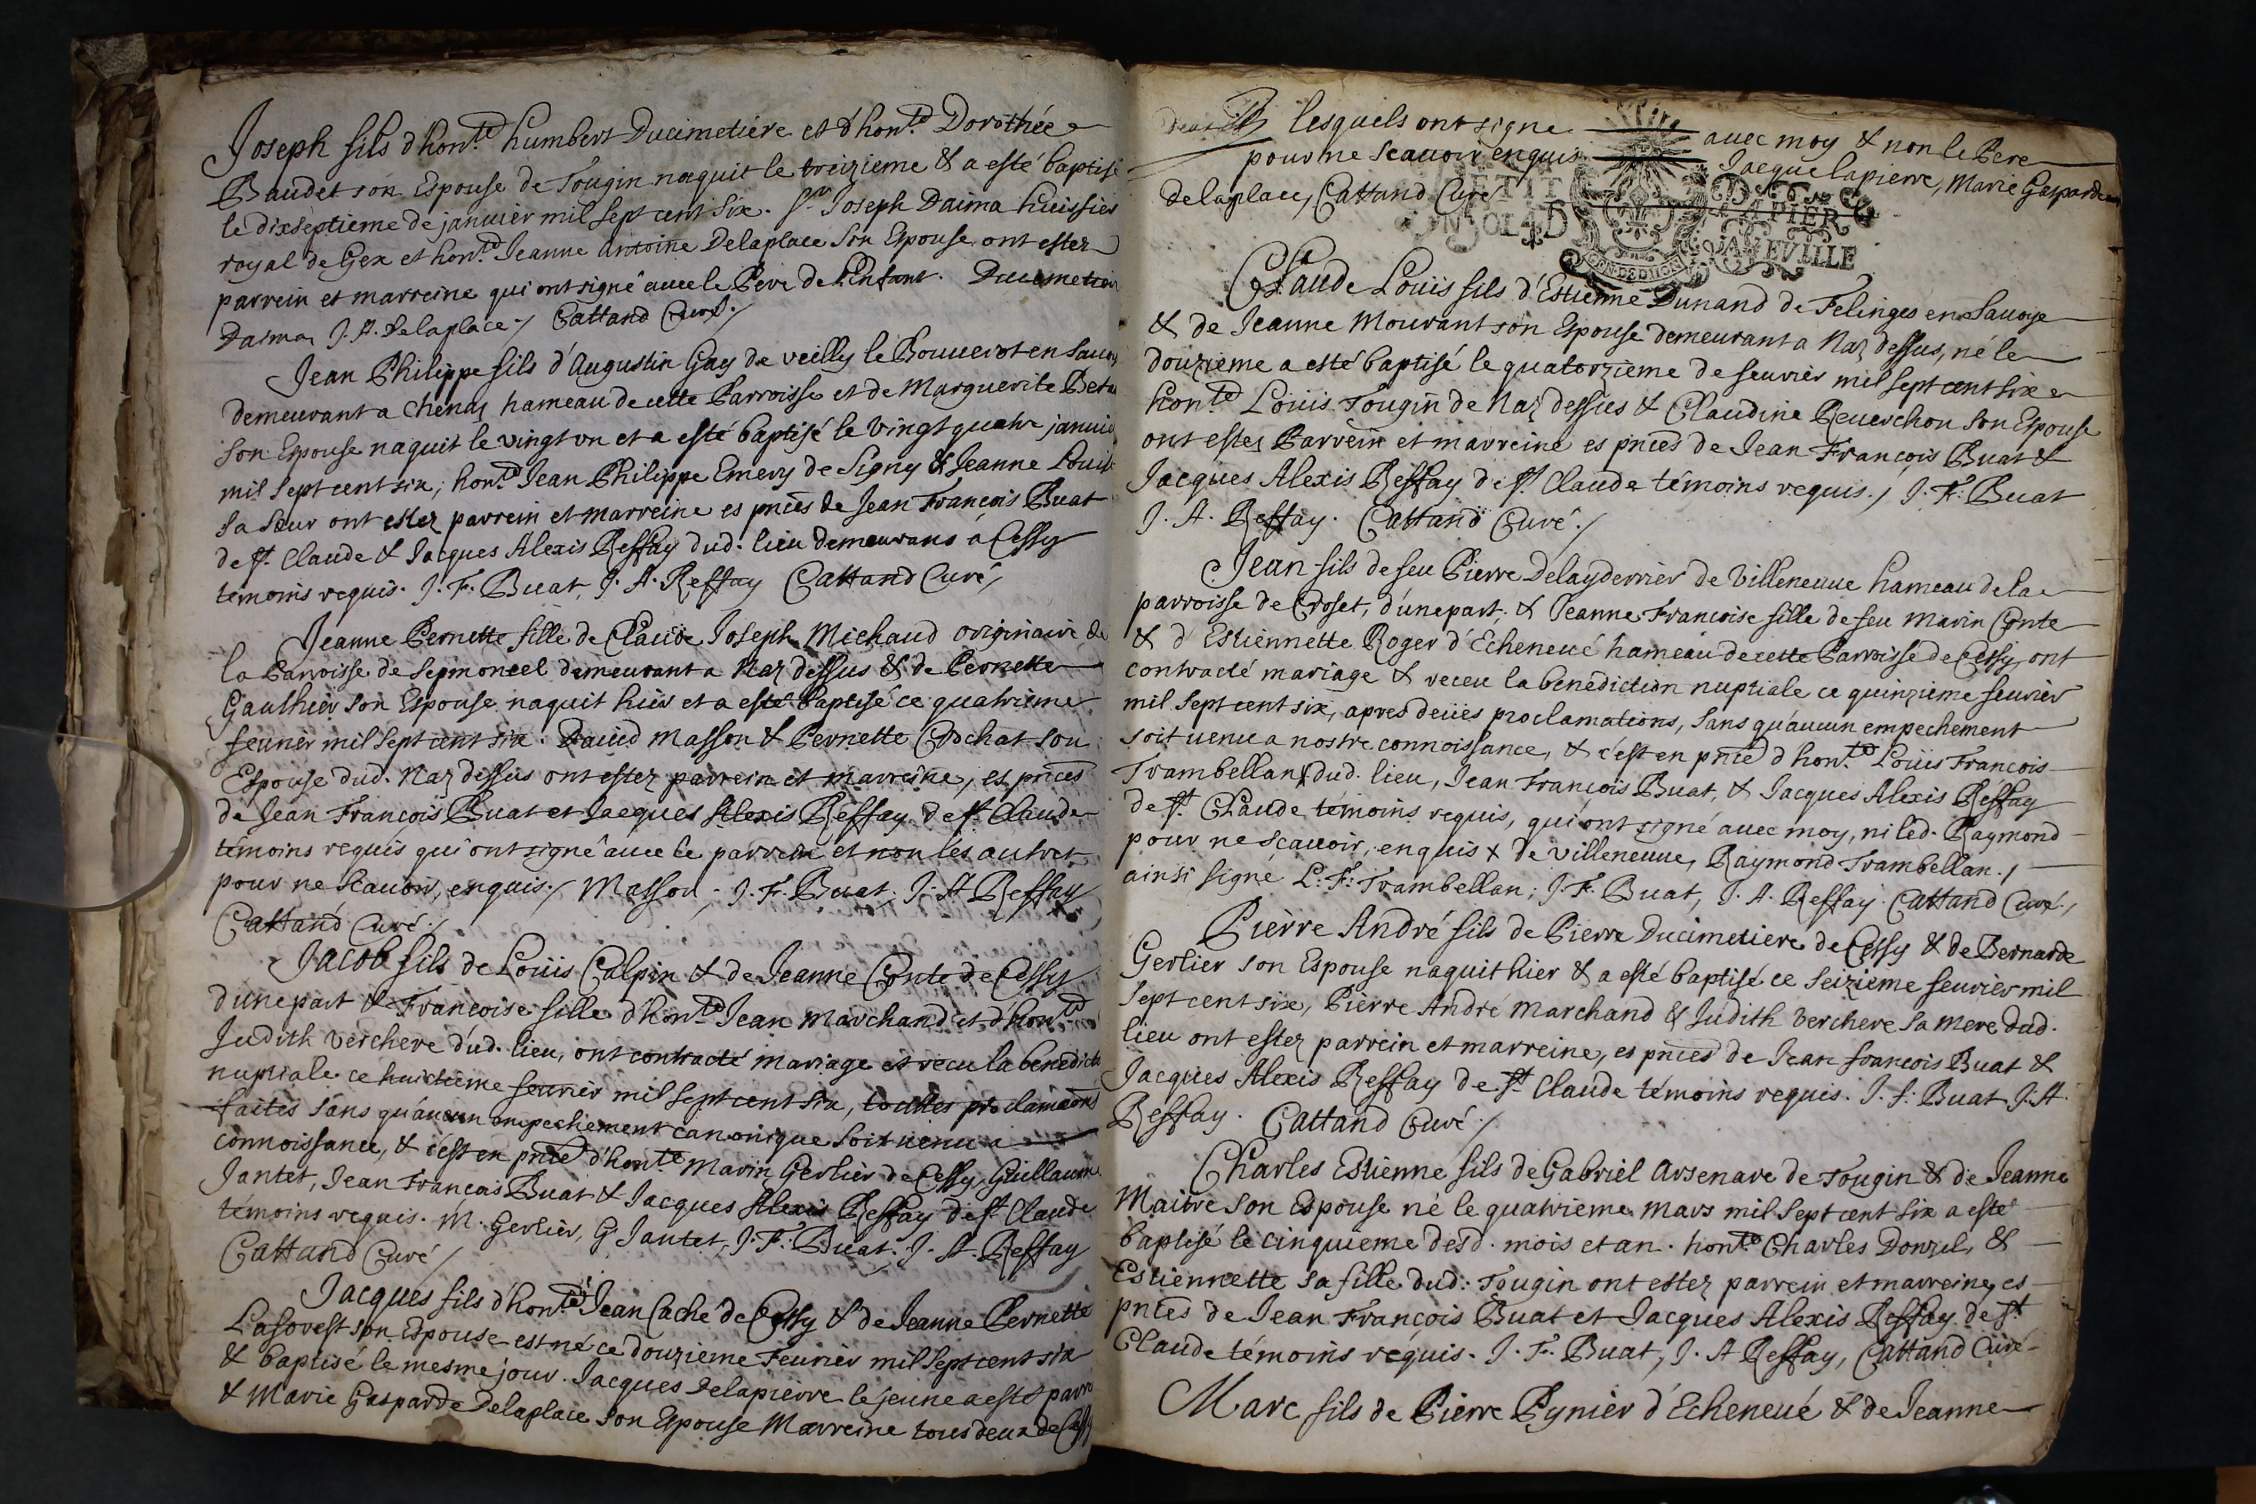 Joseph fils d'hon.te humbert Ducimetiére et d'hon.te Dorothée
Baudet son Espouse de Tougin naquit le treizieme & a esté baptisé
le dixseptieme de januier mil sept cent six. Sr. Joseph Daima huissier
royal de Gex et hon.te Jeanne Antoine Delaplace son Espouse ont estez
parrein et marreine qui ont signé auec le Pere de L'enfant. Ducimetiere
Daima, J. A. Delaplace / Cattand Curé /
Jean Philippe fils d'Augustin Gay de veilly le Bouueret en Sauoye
demeurant a Chenaz hameau de cette Parroisse et de Marguerite
son Espouse naquit le vingt vn et a esté baptisé le vingt quatre januier
mil sept cent six; hon.te Jean Philippe Emery de Signy & Jeanne Louise
sa sœur ont estez parrein et marreine es pnces de Jean François Buat
de St. Claude & Jacques Alexis Reffay dud. lieu demeurans á Cessy
témoins requis. J. F. Buat, J. A. Reffay Cattand Curé /
Jeanne Pernette fille de Claude Joseph Michaud originaire de
la Parroisse de Sepmoncel demeurant a Naz dessus & de Pernette
Gauthier son Espouse naquit hier et a esté baptisé ce quatrieme
feurier mil sept cent six. Dauid Masson & Pernette Cochat son
Espouse dud. Naz dessus ont estez parrein et marreine, es pnces
de Jean François Buat et Jacques Alexis Reffay de St. Claude
témoins requis qui ont signé auec le parrein et non les autres
pour ne scauoir, enquis. / Masson, J. F. Buat, J. A. Reffay
Cattand Curé /
Jacob fils de Loüis Calpin & de Jeanne Conte de Cessy
d'une part & Francoise fille d'hon.te Jean Marchand et d'hon.te
Judith Verchere dud. lieu, ont contracté mariage et receu la benedicti
nuptiale ce huictieme feurier mil sept cent six, touttes proclamaons
faites sans qu'aucun empechement canonique soit uenu a
connoissance, & c'est en pnce d'hon.te Marin Gerlier de Cessy, Guillaume
Jantet, Jean François Buat & Jacques Alexis Reffay de St. Claude
témoins requis. M. Gerlier, G. Jantet, J. F. Buat, J. A. Reffay
Cattand Curé /
Jacques fils d'hon.te Jean Caché de Cessy & de Jeanne Pernette
Laforest son Espouse est né ce douzieme Feurier mil sept cent six
& baptisé le mesme jour. Jacques Delapierre le jeune a esté parre
& Marie Gasparde Delaplace son Espouse Marreine tous deux de Cessy
lesquels ont signe auec moy & non le Pere
pour ne scauoir enquis Jacque lapierre, Marie Gasparde
delaplace, Cattand Curé
PETIT PAPIER
SOL 4 D LA FEVILLE
GEN DE DIJON
Claude Louis fils d'Estienne Dunand de Felinges en Sauoye
& de Jeanne Mourant son Espouse demeurant a Naz dessus, né le
douzieme a esté baptisé le quatorzieme de feurier mil sept cent six
hon.te Loüis Tougin de Naz dessus & Claudine Reuerchon son Espouse
ont estez Parrein et marreine es pnces de Jean François Buat &
Jacques Alexis Reffay de St. Claude témoins requis. / J. F. Buat
J. A. Reffay. Cattand Curé. /
Jean fils de feu Pierre Delayderrier de Villeneuue hameau de la
parroisse de Croset, d'une part, & Jeanne Francoise fille de feu Marin Conte
& d'Estiennette Roger d'Echeneué hameau de cette Parroisse de Cessy, ont
contracté mariage & receu la benediction nuptiale ce quinzieme feurier
mil sept cent six, apres deües proclamations, sans qu'aucun empechement
soit uenu a nostre connoissance, & c'est en pnce d'hon.te Loüis François
Trambellan x dud. lieu, Jean François Buat, & Jacques Alexis Reffay
de St. Claude témoins requis, qui ont signé auec moy, ni led. Raymond
pour ne scauoir, enquis x de Villeneuue, Raymond Trambellan. /
ainsi signé L. F. Trambellan, J. F. Buat, J. A. Reffay. Cattand Curé. /
Pierre André fils de Pierre Ducimetiere de Cessy & de Bernarde
Gerlier son Espouse naquit hier & a esté baptisé ce seizieme feurier mil
sept cent six, Pierre André Marchand & Judith Verchere sa mere dud.
lieu ont estez parrein et marreine, es pnces de Jean francois Buat &
Jacques Alexis Reffay de St. Claude témoins requis. J. f. Buat J. A.
Reffay. Cattand Curé. /
Charles Estienne fils de Gabriel Arsenare de Tougin & de Jeanne
Maitre son Espouse né le quatrieme Mars mil sept cent six a esté
baptisé le cinquieme desd. mois et an. hon.te Charles Donzel, &
Estiennette sa fille dud. Tougin ont estez parrein et marreine, es
pnces de Jean François Buat et Jacques Alexis Reffay de St.
Claude témoins requis. J. F. Buat, J. A Reffay, Cattand Curé
Marc fils de Pierre Pynier d'Echeneué & de Jeanne